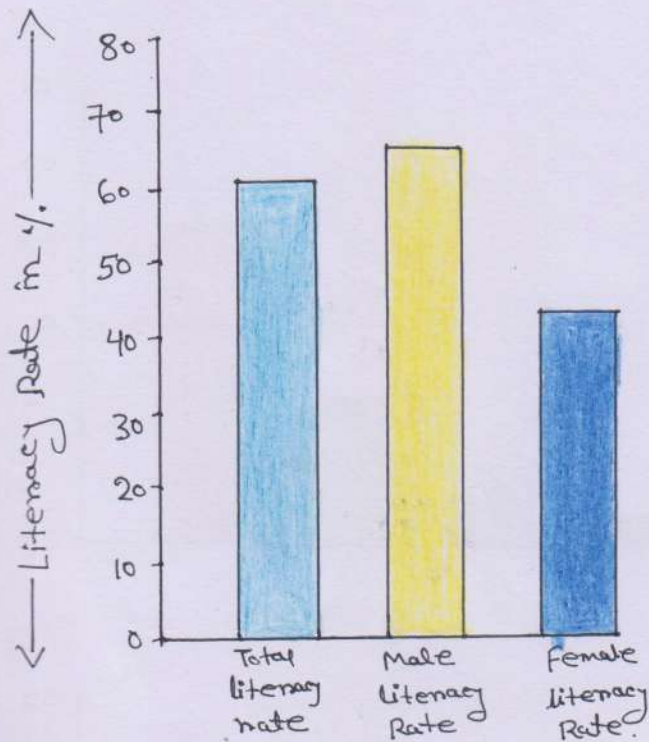 Literacy Rate in %.
80
70
60
50
40
30
20
10
0
Total
literacy
rate
Male
literacy
Rate
Female
literacy
Rate.